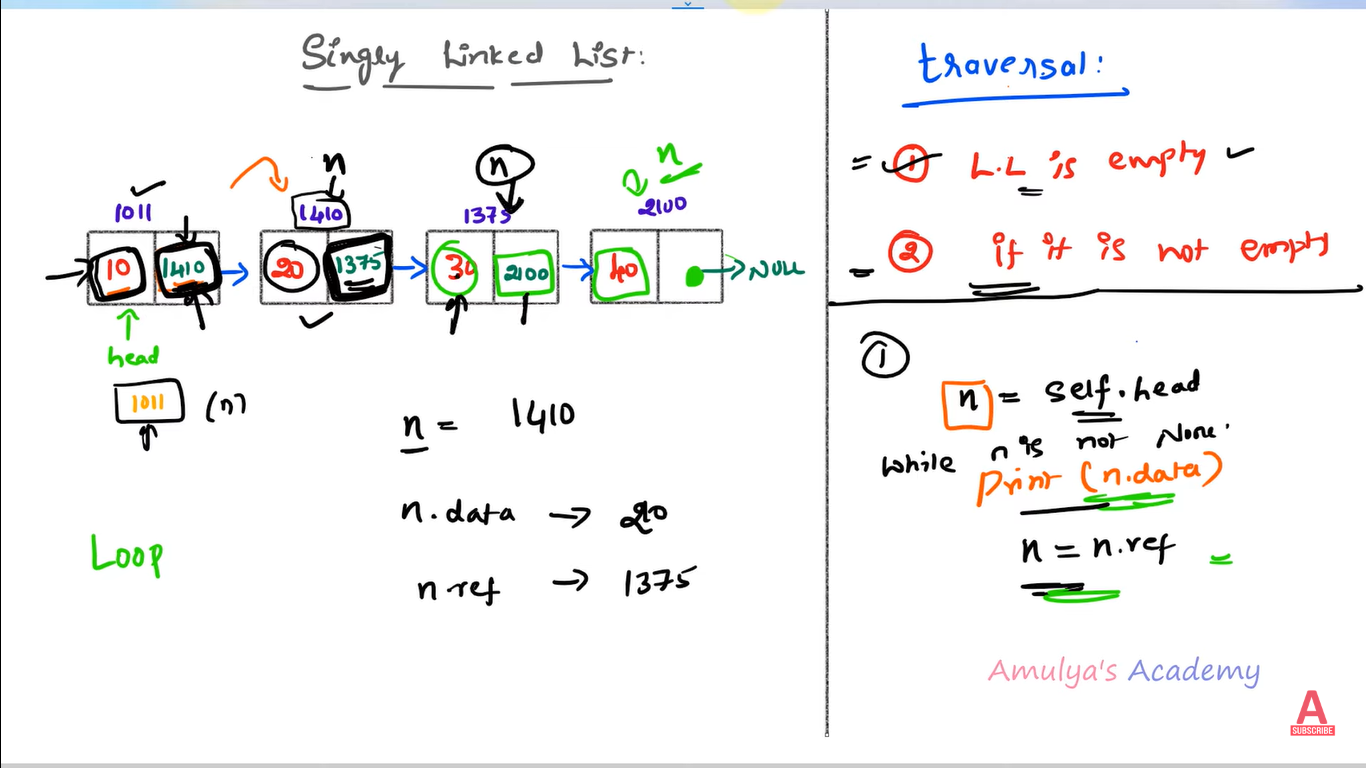 Singly Linked List:
n
n
n
1011
1410
1375
2100
10 1410
20 1375
30 2100
40
NULL
head
1011 (n)
n = 1410
n.data → 20
n.ref → 1375
Loop
traversal:
= ① L.L is empty ✓
= ② if it is not empty
①
n = self.head
while n is not None.
Print (n.data)
n = n.ref =
Amulya's Academy
A
SUBSCRIBE